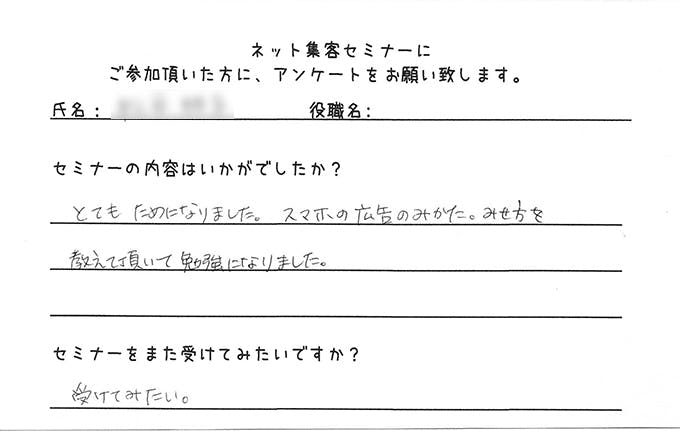 ネット集客セミナーに
ご参加頂いた方に、アンケートをお願い致します。
氏名: 役職名:
セミナーの内容はいかがでしたか?
とても ためになりました。 スマホの広告のみかた。みせ方を
教えて頂いて勉強になりました。
セミナーをまた受けてみたいですか?
受けてみたい。